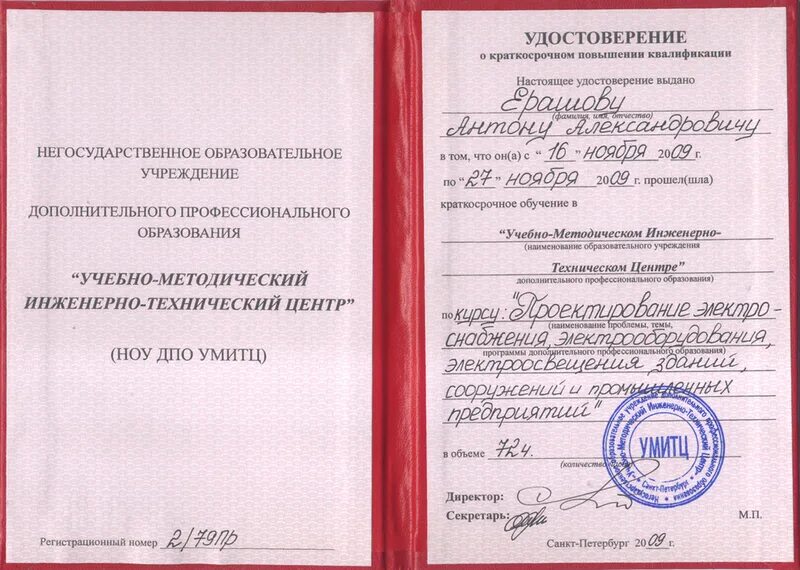 НЕГОСУДАРСТВЕННОЕ ОБРАЗОВАТЕЛЬНОЕ
УЧРЕЖДЕНИЕ
ДОПОЛНИТЕЛЬНОГО ПРОФЕССИОНАЛЬНОГО
ОБРАЗОВАНИЯ
“УЧЕБНО-МЕТОДИЧЕСКИЙ
ИНЖЕНЕРНО-ТЕХНИЧЕСКИЙ ЦЕНТР”
(НОУ ДПО УМИТЦ)
Регистрационный номер 2/79ПР
УДОСТОВЕРЕНИЕ
о краткосрочном повышении квалификации
Настоящее удостоверение выдано
Ерашову
(фамилия, имя, отчество)
Антону Александровичу
в том, что он(а) с “ 16 ” ноября 2009 г.
по “27” ноября 2009 г. прошел(шла)
краткосрочное обучение в
“Учебно-Методическом Инженерно-
(наименование образовательного учреждения
Техническом Центре”
дополнительного профессионального образования)
по курсу: "Проектирование электро-
(наименование проблемы, темы,
снабжения, электрооборудования,
программы дополнительного профессионального образования)
электроосвещения зданий,
сооружений и промышленных
предприятий"
в объеме 72ч.
(количество
Директор:
Секретарь:
М.П.
Санкт-Петербург 2009 г.
Негосударственное образовательное учреждение дополнительного профессионального образования
Учебно-Методический Инженерно-Технический Центр
Санкт-Петербург
УМИТЦ